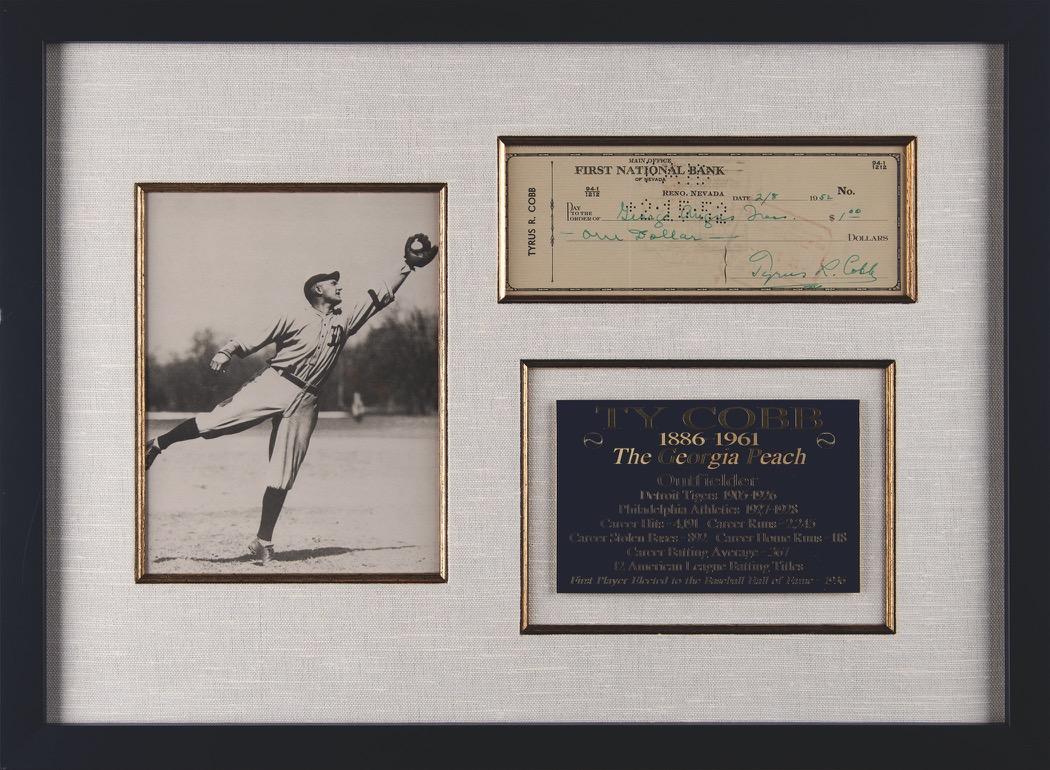 MAIN OFFICE
FIRST NATIONAL BANK
OF NEVADA
94-1
1212
94-1
1212
RENO, NEVADA
DATE 2/8 1952 No.
PAY
TO THE
ORDER OF George
$1.00
One Dollar DOLLARS
Tyrus R. Cobb
TYRUS R. COBB
D
TY COBB
1886-1961
The Georgia Peach
Outfielder
Detroit Tigers 1905-1926
Philadelphia Athletics 1927-1928
Career Hits - 4,191 Career Runs - 2,245
Career Stolen Bases - 892 Career Home Runs - 118
Career Batting Average - .367
12 American League Batting Titles
First Player Elected to the Baseball Hall of Fame - 1936